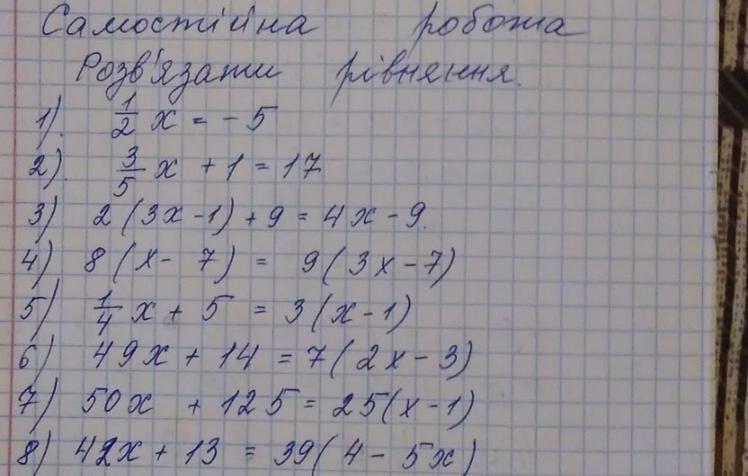 Самостійна робота
Розв'язати рівняння.
1). 1/2 x = - 5
2). 3/5 x + 1 = 17
3) 2 (3x - 1) + 9 = 4x - 9.
4) 8 (x - 7) = 9 (3x - 7)
5) 1/4 x + 5 = 3 (x - 1)
6) 49x + 14 = 7 (2x - 3)
7) 50x + 125 = 25 (x - 1)
8) 42x + 13 = 39 (4 - 5x)